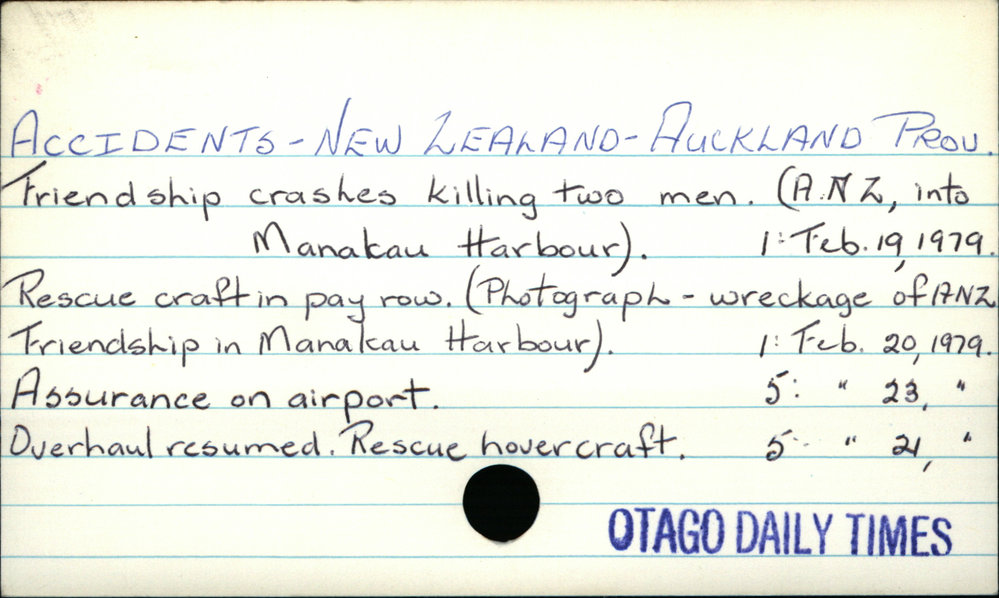 ACCIDENTS - NEW ZEALAND - AUCKLAND PROV.
Friendship crashes killing two men. (A.N Z, into
Manakau Harbour). 1: Feb. 19, 1979.
Rescue craft in pay row. (Photograph - wreckage of ANZ
Friendship in Manakau Harbour). 1: Feb. 20, 1979.
Assurance on airport. 5: " 23, "
Overhaul resumed. Rescue hovercraft. 5: " 21, "
OTAGO DAILY TIMES